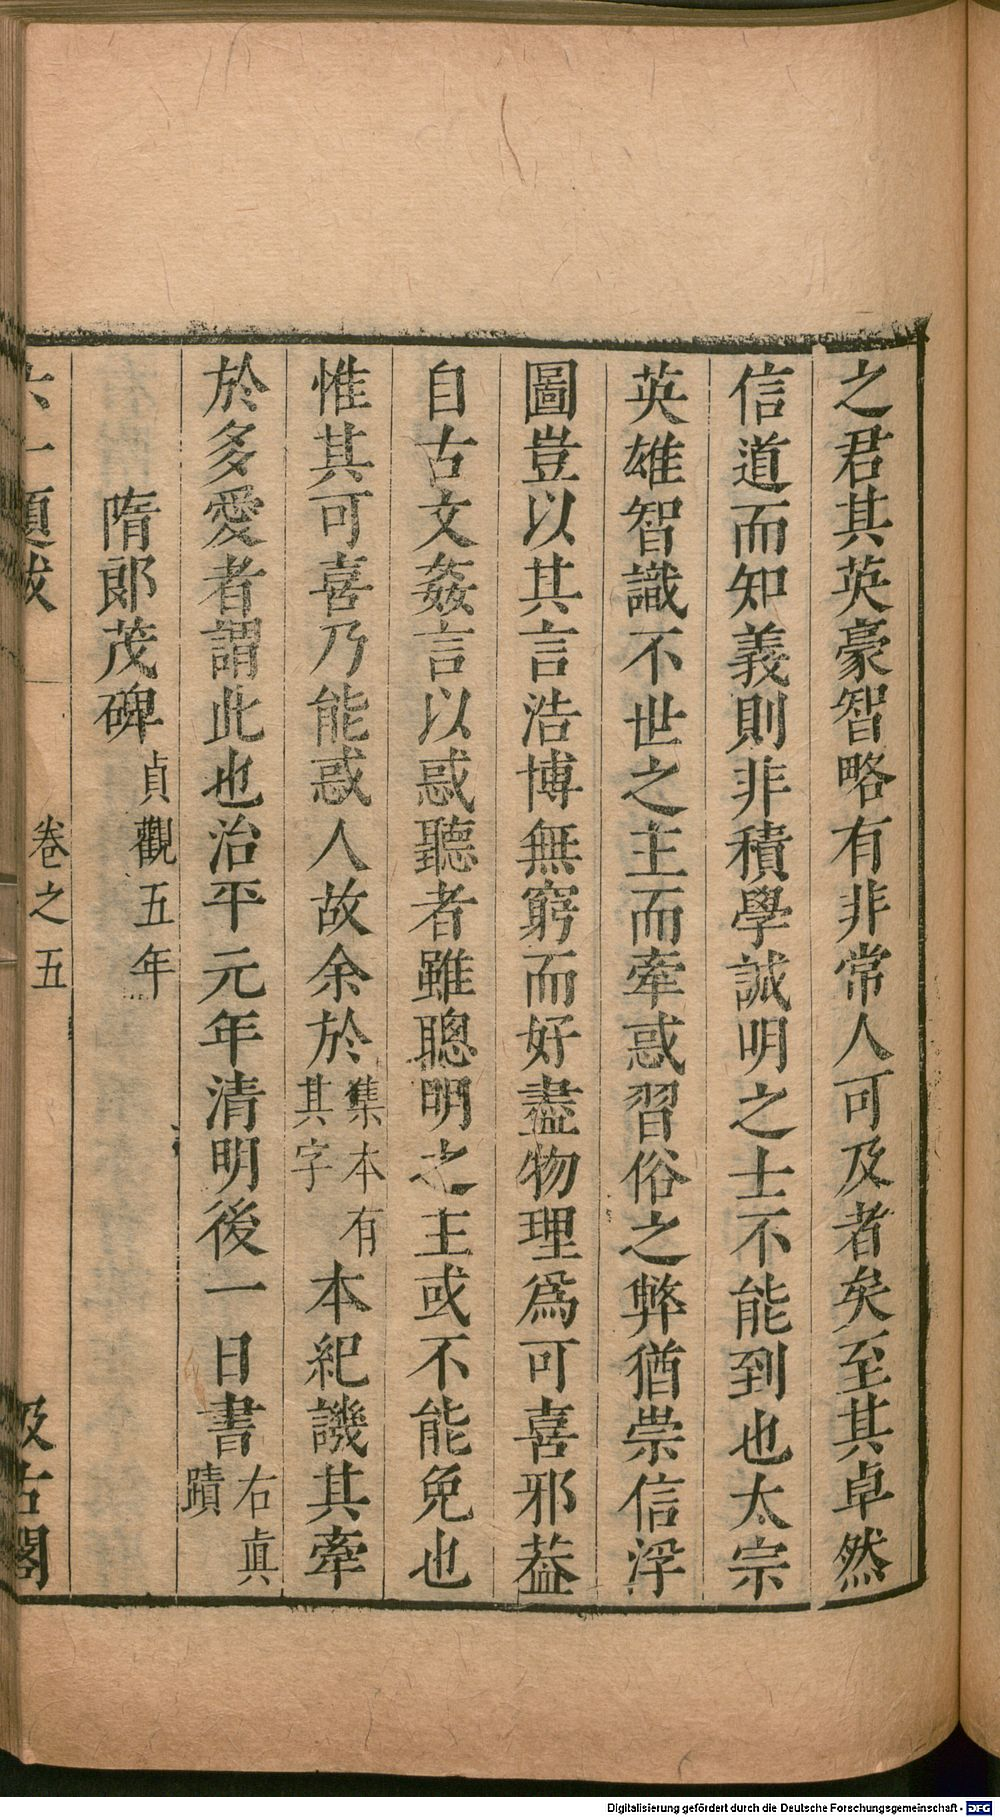 之君其英豪智略有非常人可及者矣至其卓然
信道而知義則非積學誠明之士不能到也太宗
英雄智識不世之主而牽惑習俗之弊猶崇信浮
圖豈以其言浩博無窮而好盡物理爲可喜邪葢
自古文姦言以惑聽者雖聰明之主或不能免也
惟其可喜乃能惑人故余於集本有其字本紀譏其牽
於多愛者謂此也治平元年清明後一日書右眞蹟
隋郎茂碑貞觀五年
六一題跋 卷之五 汲古閣
Digitalisierung gefördert durch die Deutsche Forschungsgemeinschaft - DFG